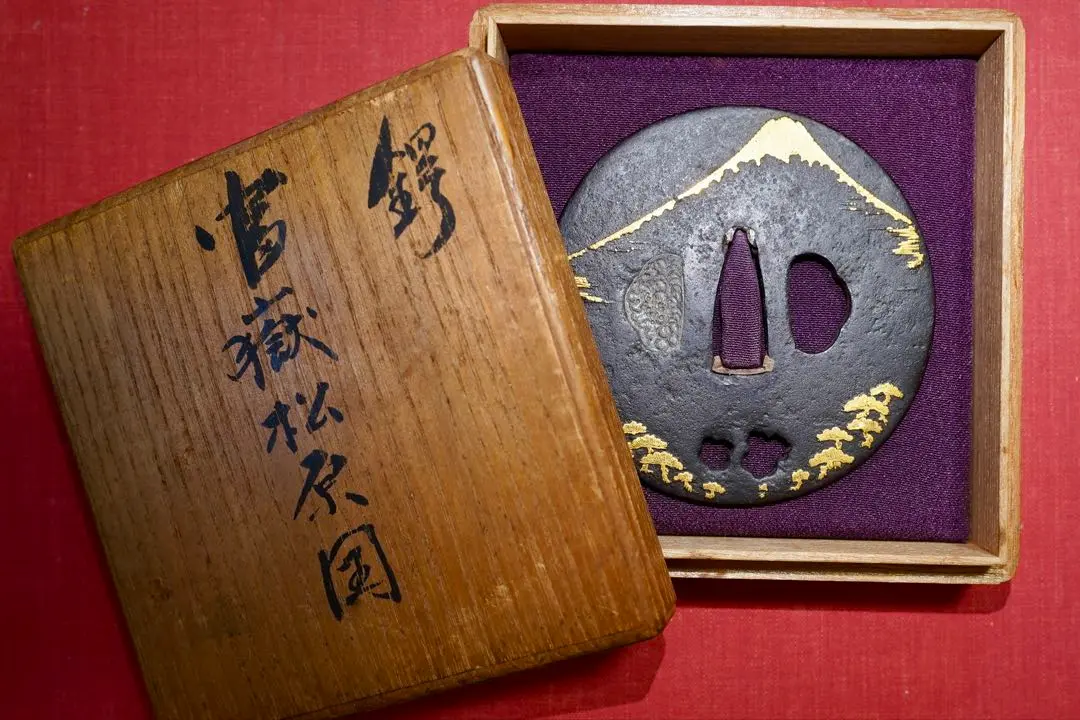 鍔
富嶽松原図